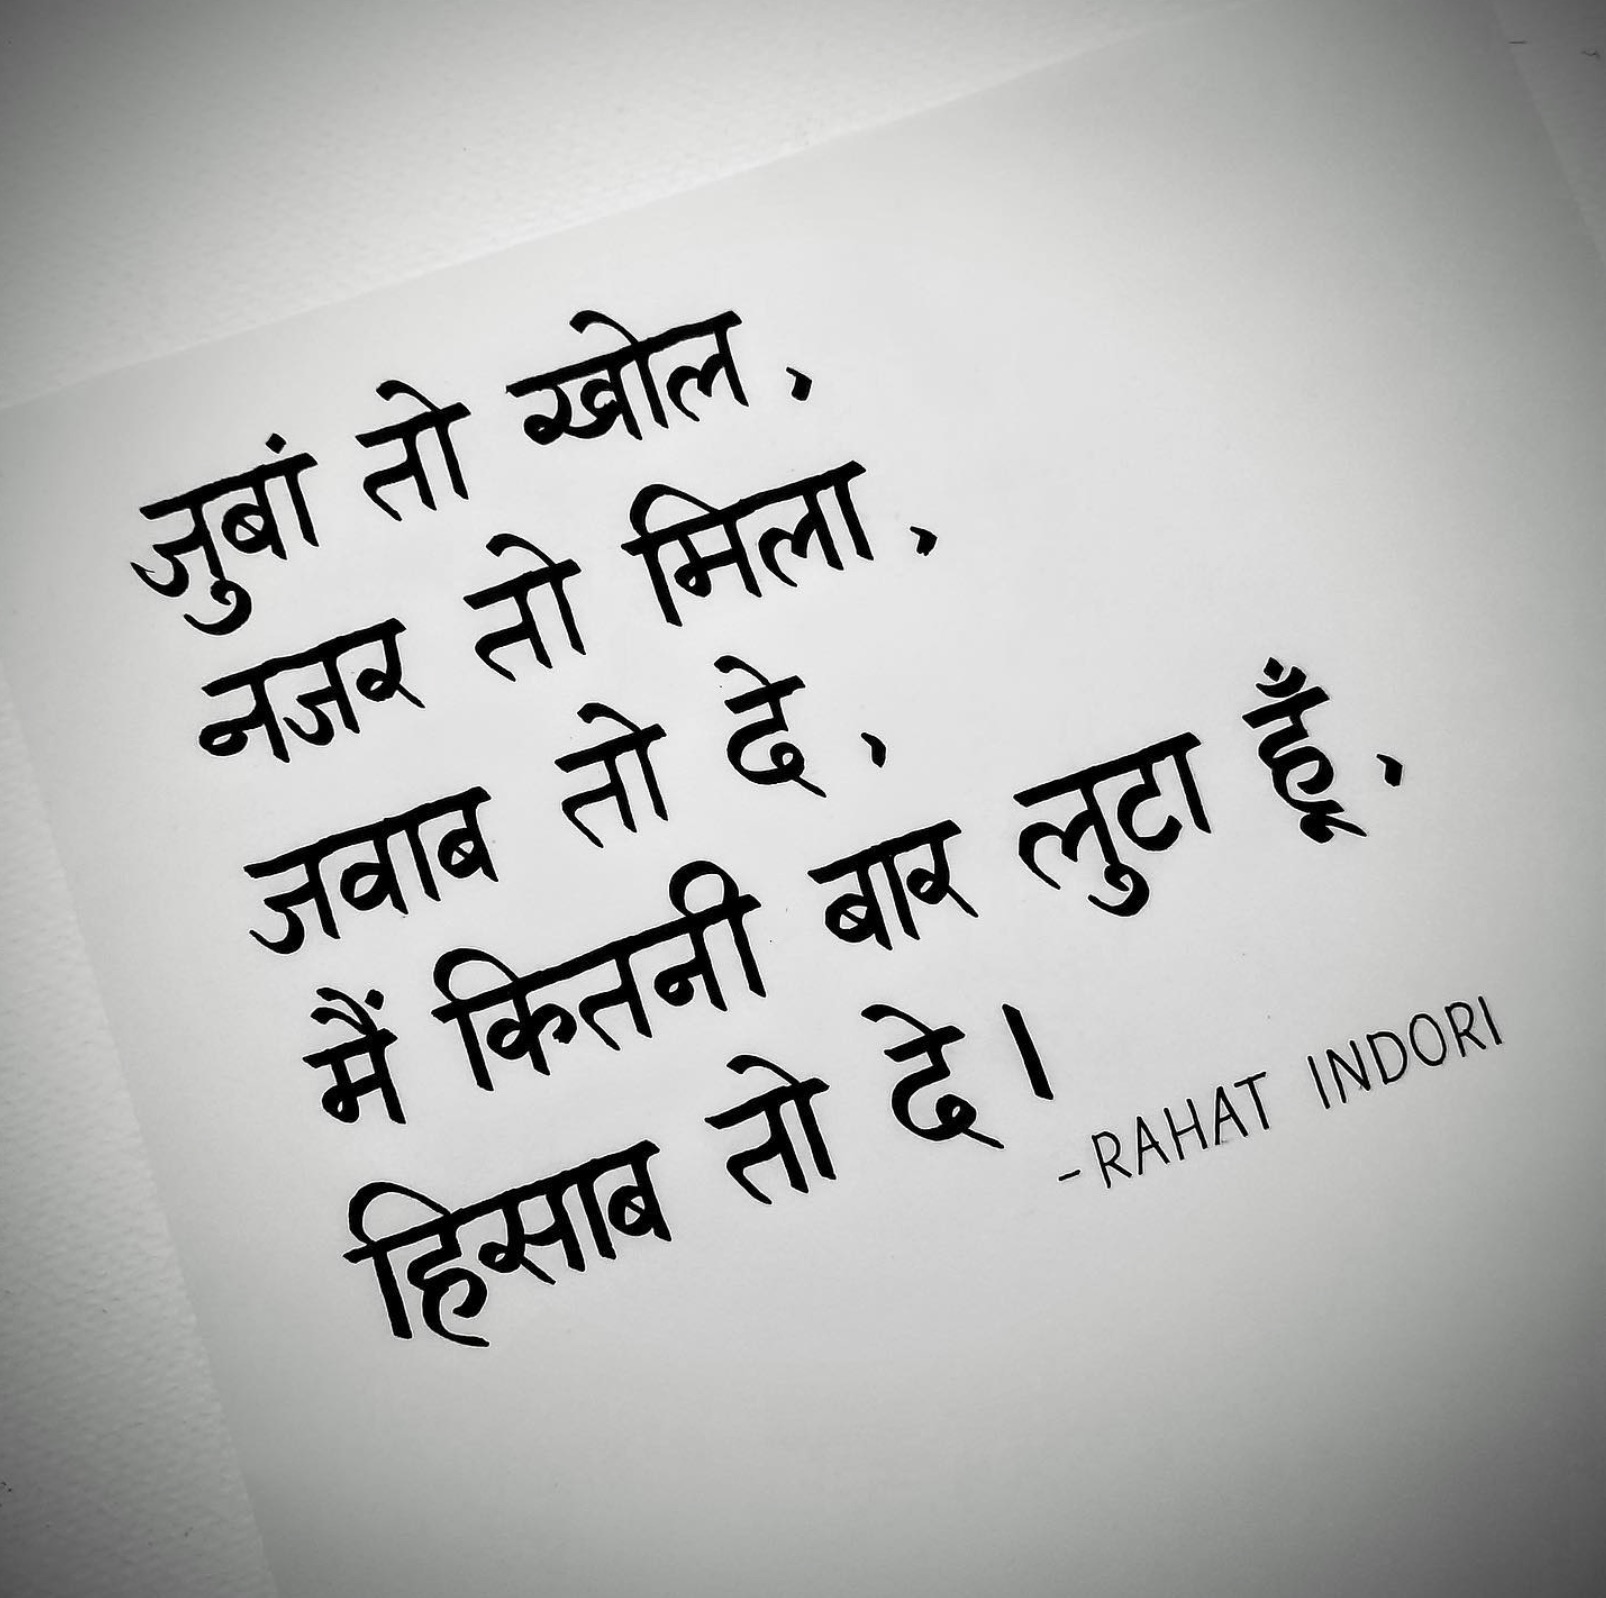 जुबां तो खोल,
नजर तो मिला,
जवाब तो दे,
मैं कितनी बार लुटा हूँ,
हिसाब तो दे।
-RAHAT INDORI